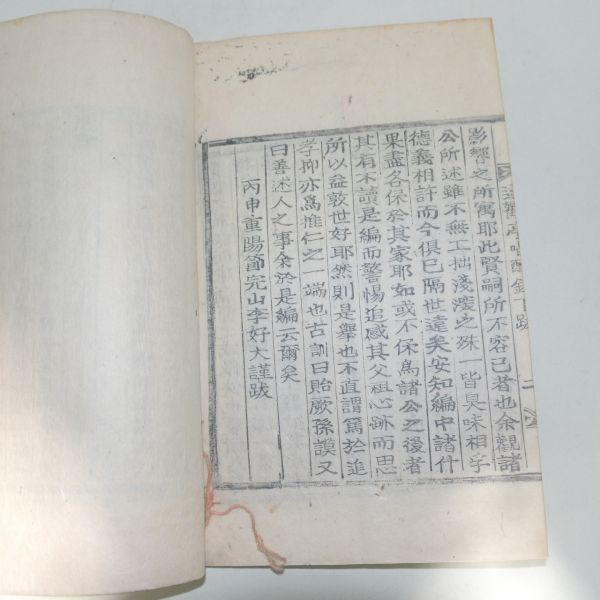 亭唱酬錄下跋 二
影響之所寓耶此賢嗣所不容已者也余觀諸
公所述雖不無工拙淺深之殊一皆臭味相孚
德義相許而今俱已隔世遠矣安知編中諸什
果盡各保於其家耶如或不保爲諸公之後者
其有不讀是編而警惕追感其父祖心跡而思
所以益敦世好耶然則是擧也不直謂篤於追
孝抑亦爲推仁之一端也古訓曰貽厥孫謨又
曰善述人之事余於是編云爾矣
丙申重陽節完山李好大謹跋